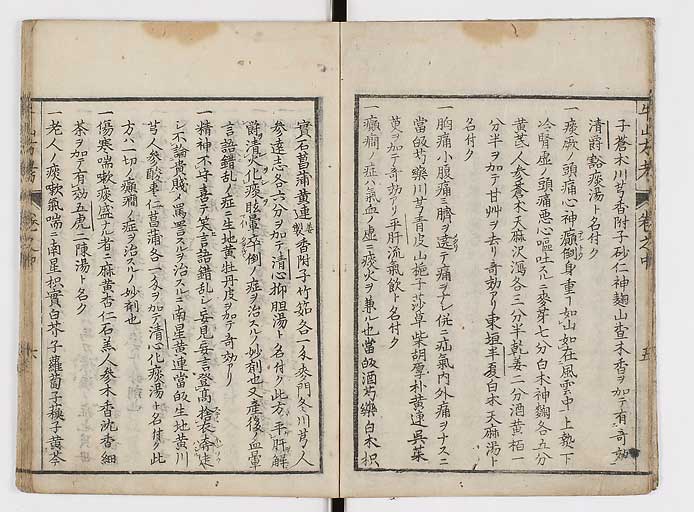 子蒼木川芎香附子砂仁神麴山査木香ヲ加テ有奇効
清爵豁痰湯ト名付ク
一痰厥ノ頭痛心神巓倒身重フ如山如在風雲中上熱下
冷腎虚ノ頭痛悪心嘔吐スルニ麥芽七分白木神麴各五分
黄芪人参蒼木天麻沢瀉各三分半乾姜二分酒黄栢一
分半ヲ加テ甘艸ヲ去リ奇効アリ東垣半夏白木天麻湯ト
名付ク
一胸痛小腹痛臍ヲ遶テ痛ヲナシ併ニ疝氣内外痛ヲナスニ
當皈芍藥川芎青皮山梔子莎草柴胡厚朴黄連呉茱
萸ヲ加テ奇効アリ平肝流氣飲ト名付ク
一癲癇ノ症ハ氣血ノ虚ニ痰火ヲ兼ル也當皈酒芍藥白木枳
實石菖蒲黄連薑製香附子竹茹各一戔麥門冬川芎人
参遠志各六分ヲ加テ清心抑胆湯ト名付ク此方平肝解
爵清火化痰眩暈卒倒ノ症ヲ治スルノ妙剤也又産後血暈
言語錯乱ノ症ニ生地黄牡丹皮ヲ加テ奇効アリ
一精神不守喜テ失言語錯乱シ妄見妄言登高捨衣奔走
シ不論貴賤メ罵詈スルヲ治スルニ南星黄連當皈生地黄川
芎人参酸棗仁菖蒲各一戔ヲ加テ清心化痰湯ト名付ク此
方ハ一切ノ癲癇ノ症ヲ治スルノ妙剤也
一傷寒喘嗽痰盛ナル者ニ麻黄杏仁石羔人参木香沈香細
茶ヲ加テ有効五虎二陳湯ト名ク
一老人ノ痰嗽氣喘ニ南星枳實白芥子蘿蔔子蘓子黄芩